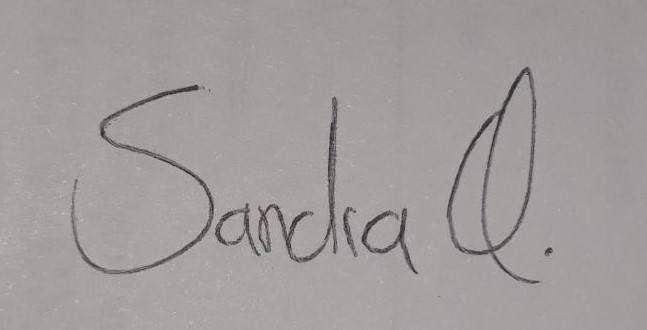 Sandra Q.